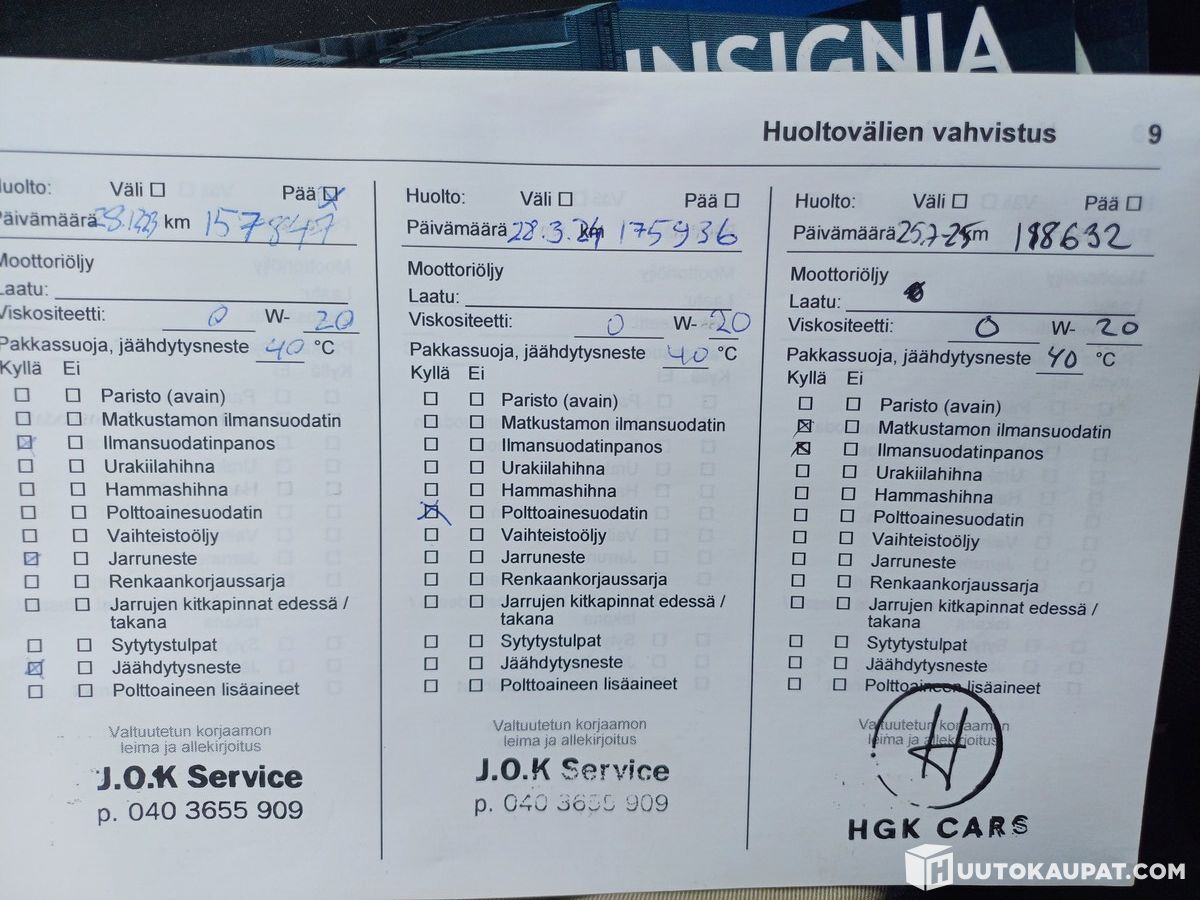 INSIGNIA
Huoltovälien vahvistus 9
Huolto: Väli ☐ Pää ☒
Päivämäärä km 157847
Moottoriöljy
Laatu:
Viskositeetti: 0 W- 20
Pakkassuoja, jäähdytysneste 40 °C
Kyllä Ei
☐ ☐ Paristo (avain)
☐ ☐ Matkustamon ilmansuodatin
☒ ☐ Ilmansuodatinpanos
☐ ☐ Urakiilahihna
☐ ☐ Hammashihna
☐ ☐ Polttoainesuodatin
☐ ☐ Vaihteistoöljy
☒ ☐ Jarruneste
☐ ☐ Renkaankorjaussarja
☐ ☐ Jarrujen kitkapinnat edessä /
takana
☐ ☐ Sytytystulpat
☒ ☐ Jäähdytysneste
☐ ☐ Polttoaineen lisäaineet
Valtuutetun korjaamon
leima ja allekirjoitus
J.O.K Service
p. 040 3655 909
Huolto: Väli ☐ Pää ☐
Päivämäärä 28.3.24 km 175936
Moottoriöljy
Laatu:
Viskositeetti: 0 W- 20
Pakkassuoja, jäähdytysneste 40 °C
Kyllä Ei
☐ ☐ Paristo (avain)
☐ ☐ Matkustamon ilmansuodatin
☐ ☐ Ilmansuodatinpanos
☐ ☐ Urakiilahihna
☐ ☐ Hammashihna
☒ ☐ Polttoainesuodatin
☐ ☐ Vaihteistoöljy
☐ ☐ Jarruneste
☐ ☐ Renkaankorjaussarja
☐ ☐ Jarrujen kitkapinnat edessä /
takana
☐ ☐ Sytytystulpat
☐ ☐ Jäähdytysneste
☐ ☐ Polttoaineen lisäaineet
Valtuutetun korjaamon
leima ja allekirjoitus
J.O.K Service
p. 040 3655 909
Huolto: Väli ☐ Pää ☐
Päivämäärä 25.7-25 km 188632
Moottoriöljy
Laatu:
Viskositeetti: 0 W- 20
Pakkassuoja, jäähdytysneste 40 °C
Kyllä Ei
☐ ☐ Paristo (avain)
☒ ☐ Matkustamon ilmansuodatin
☒ ☐ Ilmansuodatinpanos
☐ ☐ Urakiilahihna
☐ ☐ Hammashihna
☐ ☐ Polttoainesuodatin
☐ ☐ Vaihteistoöljy
☐ ☐ Jarruneste
☐ ☐ Renkaankorjaussarja
☐ ☐ Jarrujen kitkapinnat edessä /
takana
☐ ☐ Sytytystulpat
☐ ☐ Jäähdytysneste
☐ ☐ Polttoaineen lisäaineet
Valtuutetun korjaamon
leima ja allekirjoitus
H
HGK CARS
HUUTOKAUPAT.COM